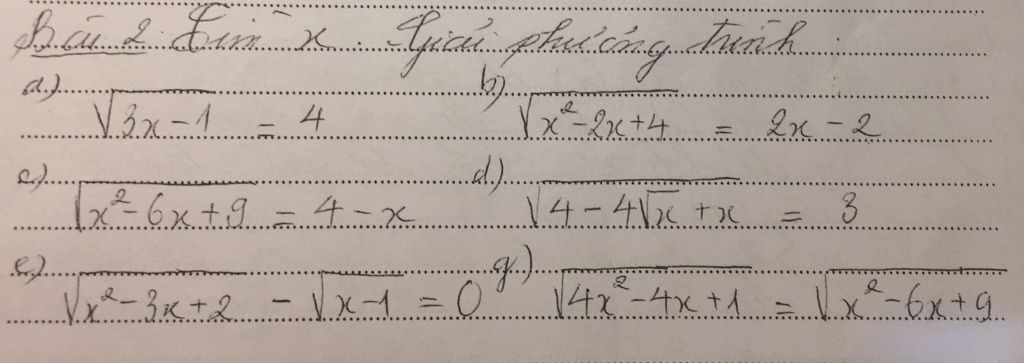 Bài 2: Tìm x. Giải phương trình
a.) √(3x-1) = 4 b) √(x²-2x+4) = 2x-2
c) √(x²-6x+9) = 4-x d.) √(4-4√x+x) = 3
e) √(x²-3x+2) - √(x-1) = 0 g.) √(4x²-4x+1) = √(x²-6x+9)